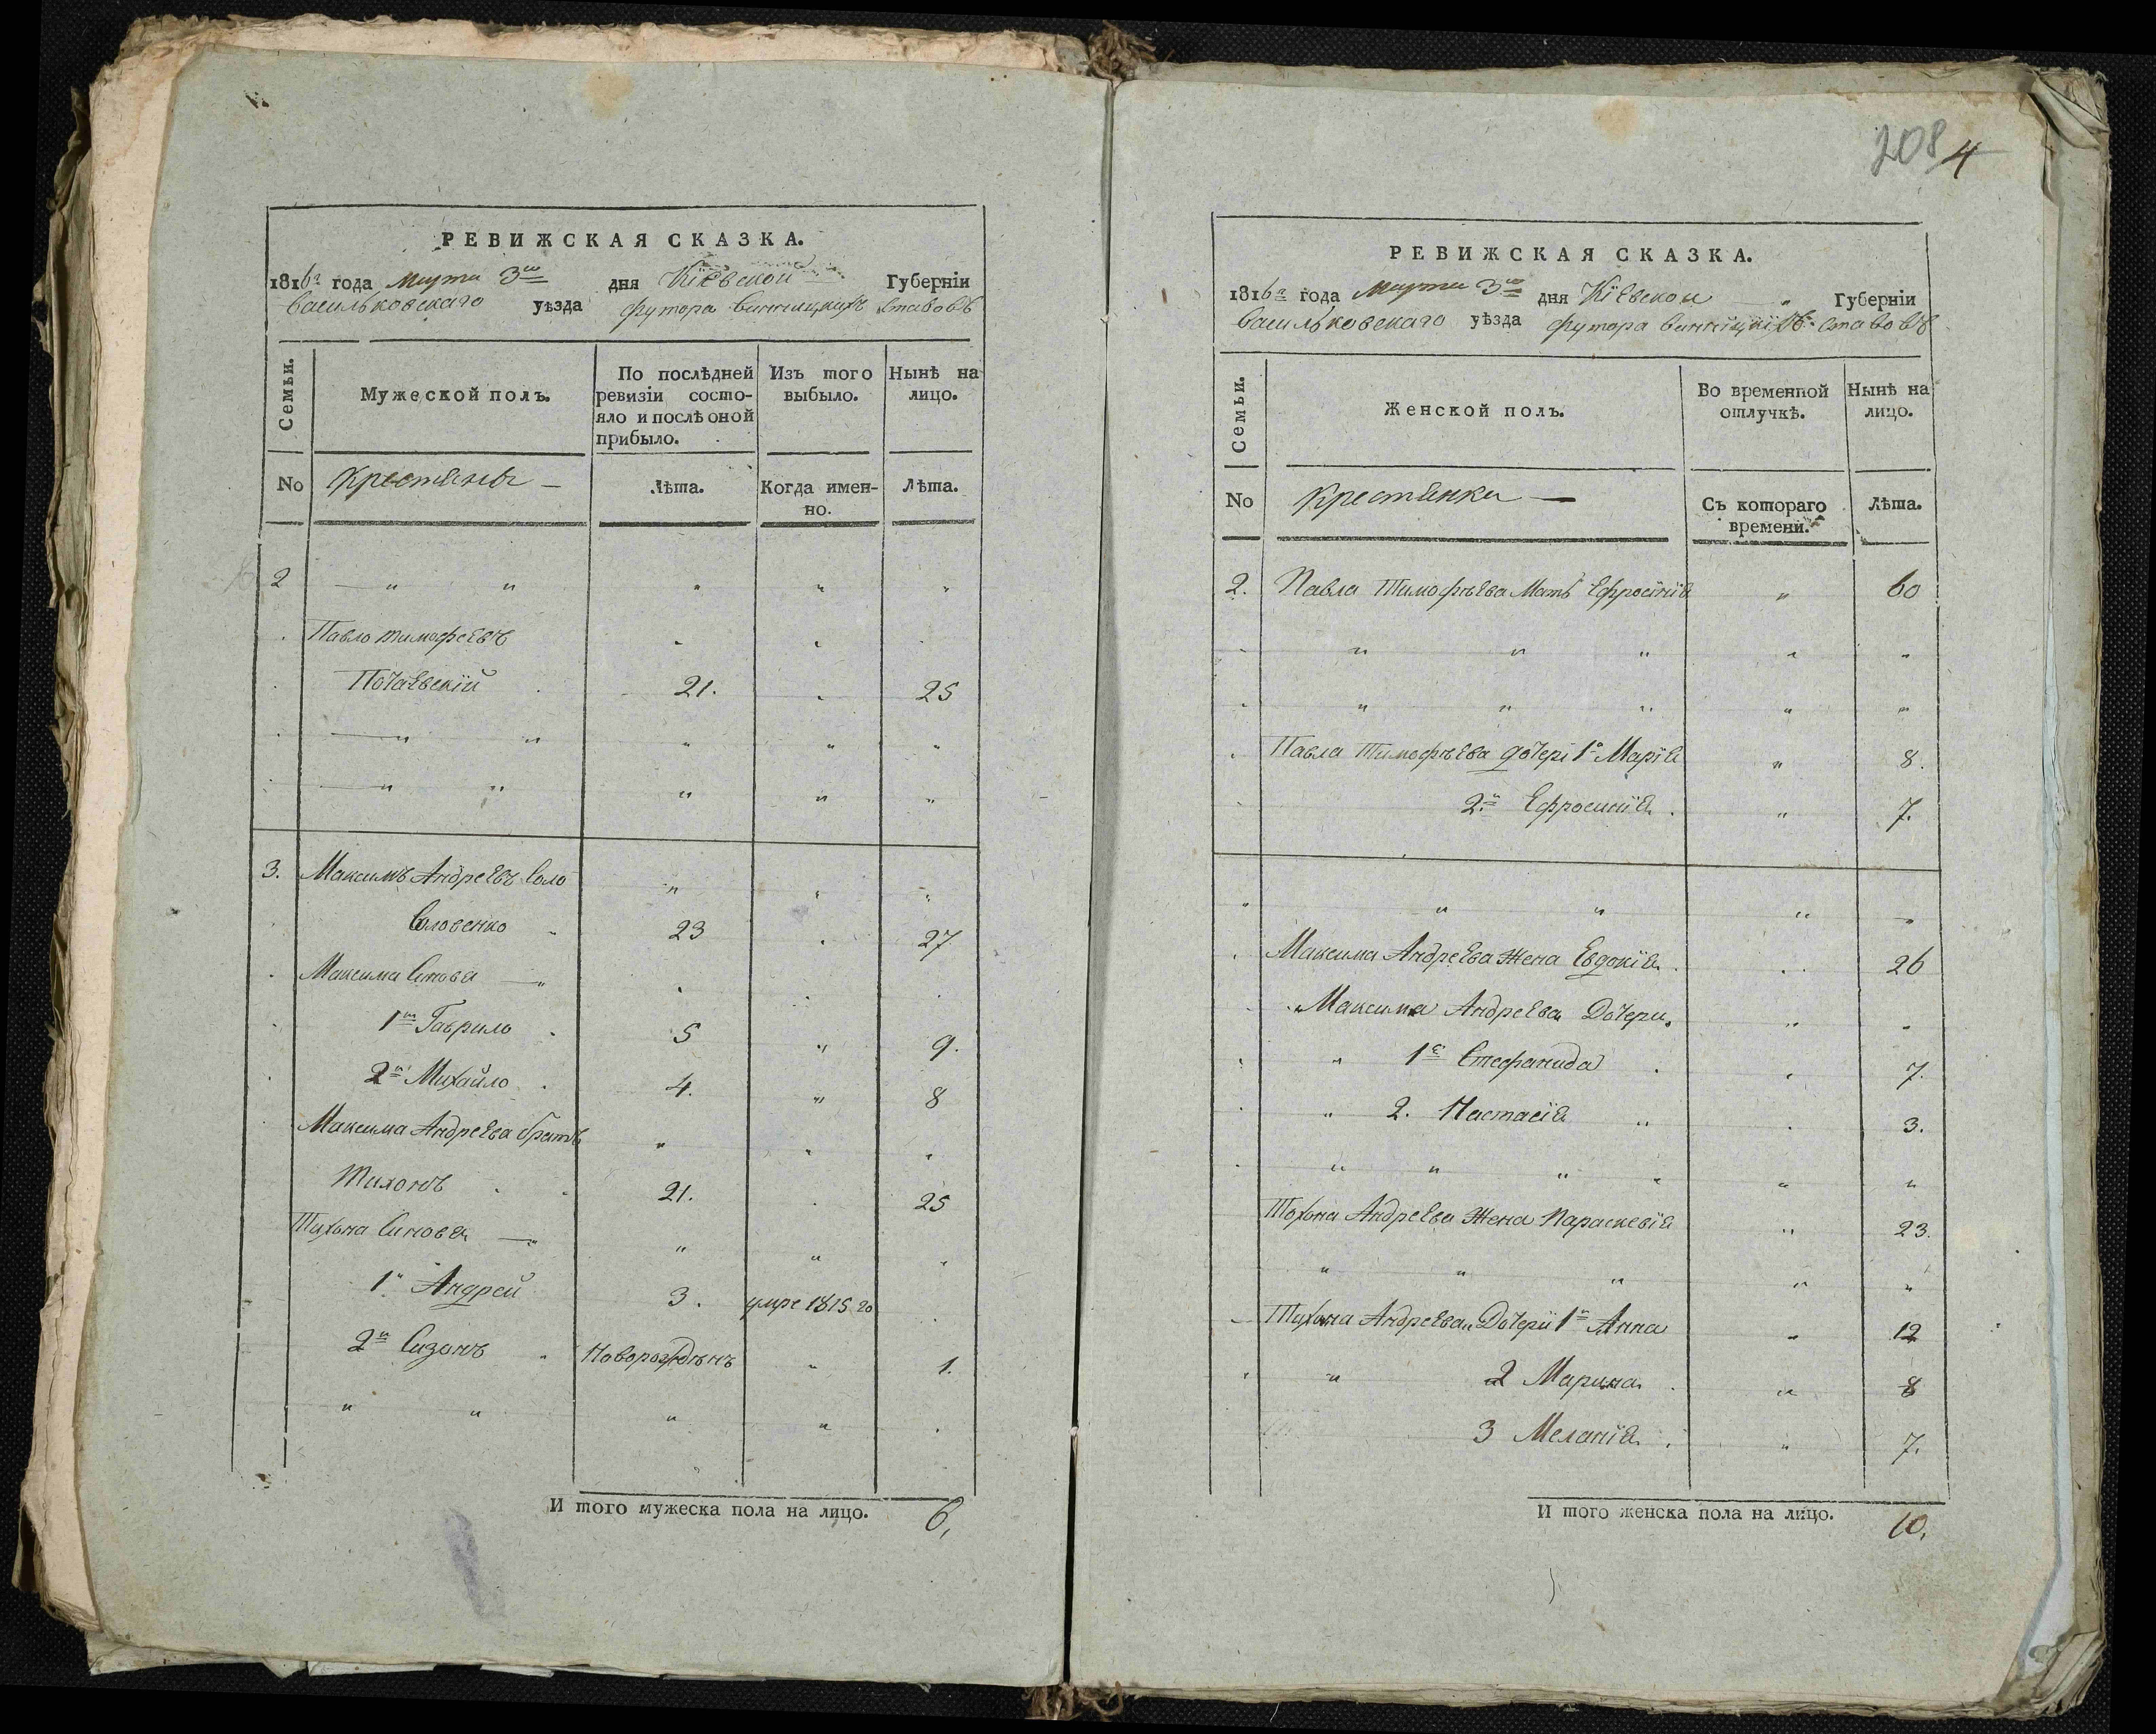 208 4
РЕВИЖСКАЯ СКАЗКА.
1816го года Марта 3го дня Кіевской Губерніи
Васильковскаго уѣзда футора Винницкихъ Ставовъ
Семьи. Мужеской полъ. По послѣдней ревизіи состояло и послѣ оной прибыло. Изъ того выбыло. Нынѣ на лицо.
No Крестяны — Лѣта. Когда именно. Лѣта.
2 — " " " " "
Павло Тимофеевъ
Почаевскій 21. 25
— " " " " "
— " " " " "
3. Максимъ Андреевъ Соло " " "
Соловенко 23 27
Максима Синовя — "
1й Гаврило 5 " 9.
2й Михайло 4. " 8
Максима Андреева братъ " " "
Тихонъ 21. 25
Тихона Синовя — " " " "
1й Андрей 3. умре 1815 го
2й Сазонъ Новорожденъ " 1.
" " " "
И того мужеска пола на лицо. 6,
РЕВИЖСКАЯ СКАЗКА.
1816го года Марта 3го дня Кіевской " Губерніи
Васильковскаго уѣзда футора Винніцкіхъ Ставовъ
Семьи. Женской полъ. Во временной отлучкѣ. Нынѣ на лицо.
No Крестянки — Съ котораго времени. Лѣта.
2. Павла Тимофѣева Мать Ефросінія " 60
" " " " "
" " " " "
Павла Тимофѣева дочері 1я Марія " 8.
2я Ефросинія " 7.
" " " " "
Максима Андреева Жена Евдокія 26
Максима Андреева Дочери " "
" 1я Стефанида 7.
" 2. Настасія " 3.
" " " " "
Тохона Андреева Жена Параскевія " 23.
" " " " "
Тихона Андреева Дочерїи 1я Анна " 12
" " 2 Марина " 8
3 Меланія " 7.
И того женска пола на лицо. 10.